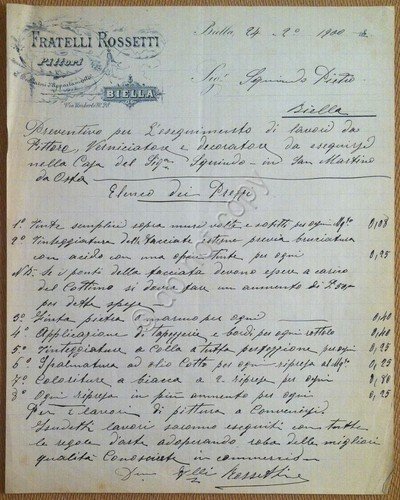 FRATELLI ROSSETTI
Pittori
BIELLA
Biella 24 2° 1900
Sig. Squindo Pietro
Biella
Preventivo per L'eseguimento di lavori da
Pittore, Verniciatore e decoratore da eseguirsi
nella Casa del Sig. Squindo in San Martino
da Osta
Elenco dei Prezzi
1° Tinte semplici sopra muri volte e soffitti per ogni Mq. 0,08
2° Tinteggiatura delle facciate esterne previa bruciatura
con acido con una o più tinte per ogni 0,25
NB. Se i ponti della facciata devono essere a carico
del Cottimo si dovrà fare un aumento di
per dette spese
3° Tinta pietra o marmo per ogni 0,40
4° Applicazione di tapezzerie e bordi per ogni rottolo 0,40
5° Tinteggiature a colla a tutta perfezione per ogni 0,25
6° Spalmatura ad olio Cotto per ogni ripresa al Mq. 0,25
7° Coloriture a biacca a 2 riprese per ogni 0,80
8° Ogni ripresa in più aumento per ogni 0,25
Per i lavori di pittura a Convenirsi.
I sudetti lavori saranno eseguiti con tutte
le regole d'arte adoperando roba delle migliori
qualità Conosciute in commercio
F.lli Rossetti
copy